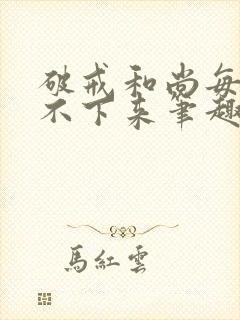 破戒和尚每
不下来筆趣
馬紅雲